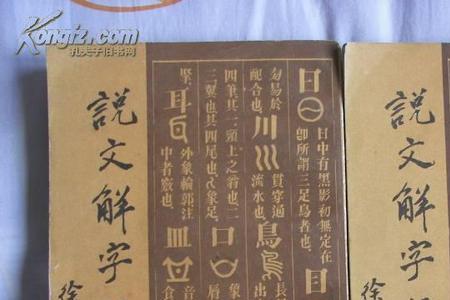 Kongfz.com
孔夫子旧书网
説文解字
徐
日
日中有黑影初無定在
卽所謂三足烏者也
目
匆易於
配合也
川
貫穿通
流水也
鳥
長
出
四筆其一頭上之翁也二
三翼也其四尾也
象足
口
象
唇
耳
外象輪郭注
中者竅也
皿
音
食
説文解字
徐